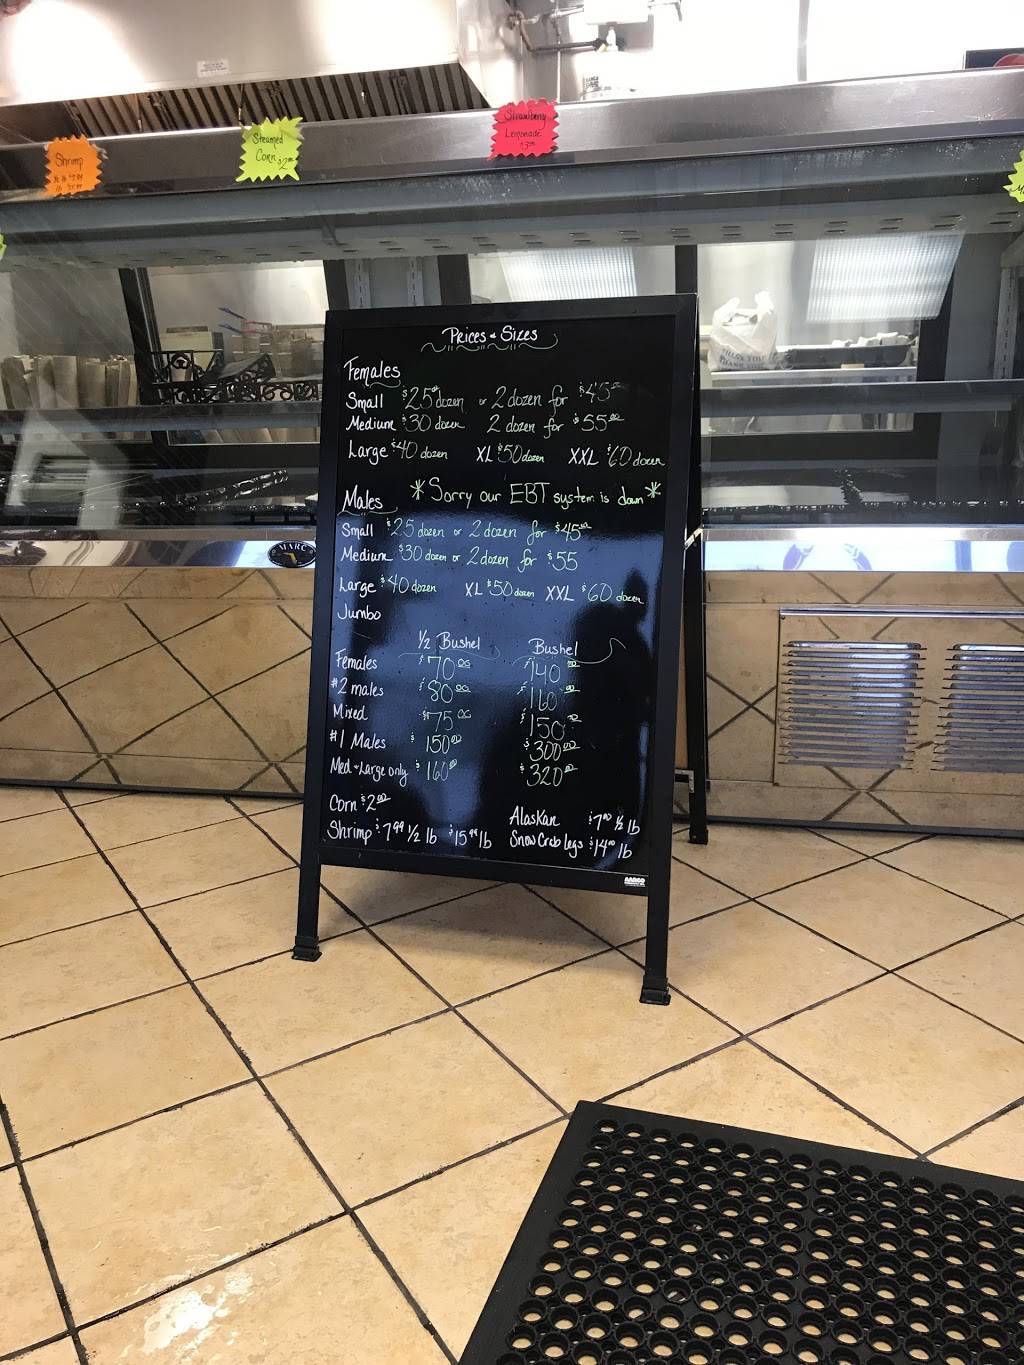 Shrimp
Steamed
Corn $2.00
Strawberry
Lemonade
THANK YOU
Prices & Sizes
Females
Small $25 dozen or 2 dozen for $45.00
Medium $30 dozen 2 dozen for $55.00
Large $40 dozen XL $50 dozen XXL $60 dozen
*Sorry our EBT system is down*
Males
Small $25 dozen or 2 dozen for $45.00
Medium $30 dozen or 2 dozen for $55
Large $40 dozen XL $50 dozen XXL $60 dozen
Jumbo
1/2 Bushel Bushel
Females $70.00 $140.00
#2 males $80.00 $160.00
Mixed $75.00 $150.00
#1 Males $150.00 $300.00
Med & Large only $160.00 $320.00
Corn $2.00
Shrimp $7.99 1/2 lb $15.99 lb
Alaskan $7.00 1/2 lb
Snow Crab legs $14.00 lb
MARC